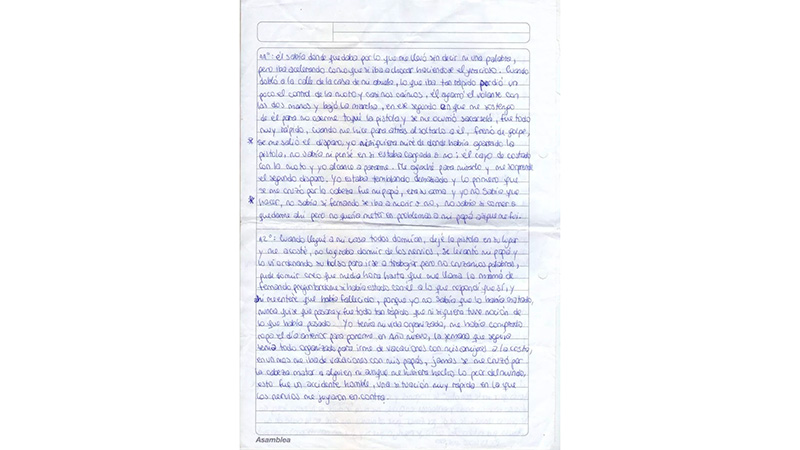 11°: él sabía donde quedaba por lo que me llevó sin decir ni una palabra,
pero iba acelerando como que se iba a chocar haciendose el gracioso. Cuando
dobló a la calle de la casa de mi abuela, lo que iba tan rápido perdió un
poco el control de la moto y casi nos caímos. él agarró el volante con
las dos manos y bajó la marcha, en ese segundo en que me sostengo
de él para no caerme toqué la pistola y se me ocurrió sacarsela, fue todo
muy rápido, cuando me hice para atrás al soltarlo a él, frenó de golpe,
se me salió el disparo yo ni siquiera miré de donde había apuntado la
pistola, no sabía ni pensé en si estaba cargada o no; él cayó de costado
con la moto y yo alcancé a pararme. Me agaché para mirarlo y me sorprende
el segundo disparo. Yo estaba temblando demasiado y lo primero que
se me cruzó por la cabeza fue mi papá, era su arma y yo no sabía que
hacer, no sabía si fernando se iba a morir o no, no sabía si correr o
quedarme ahí pero no quería meter en problemas a mi papá asique me fui.
12°: Cuando llegué a mi casa todos dormían, dejé la pistola en su lugar
y me acosté, no lograba dormir de los nervios, se levantó mi papá y
lo vi ordenando su bolso para irse a trabajar pero no cruzamos palabras,
pude dormir creo que media hora hasta que me llama la mamá de
fernando preguntandome si había estado con él a lo que respondí que sí, y
ahí me enteré que había fallecido, porque yo no sabía que lo había matado,
nunca quise que pasara y fue todo tan rápido que ni siquiera tuve noción de
lo que había pasado. Yo tenía mi vida organizada, me había comprado
ropa el día anterior para ponerme en Año nuevo, la semana que seguía
tenía todo organizado para irme de vacaciones con mis amigas a la costa,
en un mes me iba de vacaciones con mis papás, jamás se me cruzó por
la cabeza matar a alguien ni aunque me hubiera hecho lo peor del mundo,
esto fue un accidente horrible, una situación muy rápida en la que
los nervios me jugaron en contra.
Asamblea